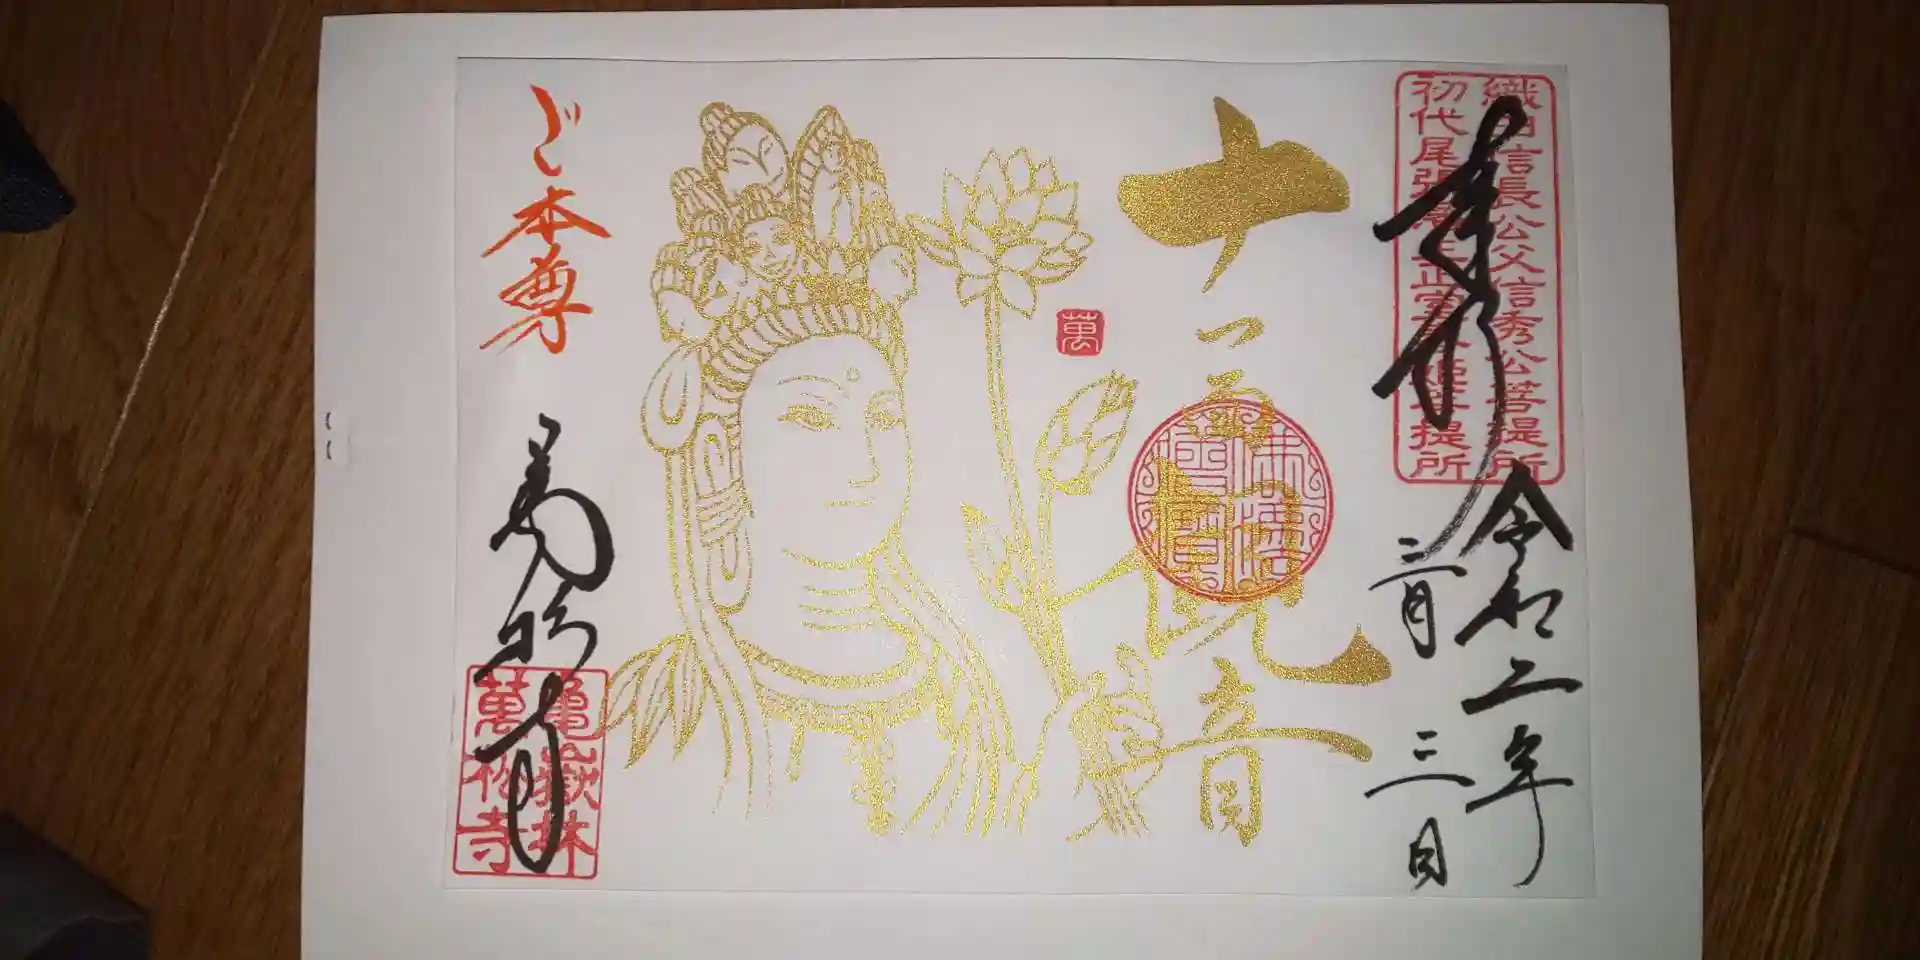 織田信長公父信秀公菩提所
初代尾張藩主正室春姫菩提所
奉拝
令和二年
三月三日
十一面観音
萬
ご本尊
萬松寺
亀嶽林
萬松寺